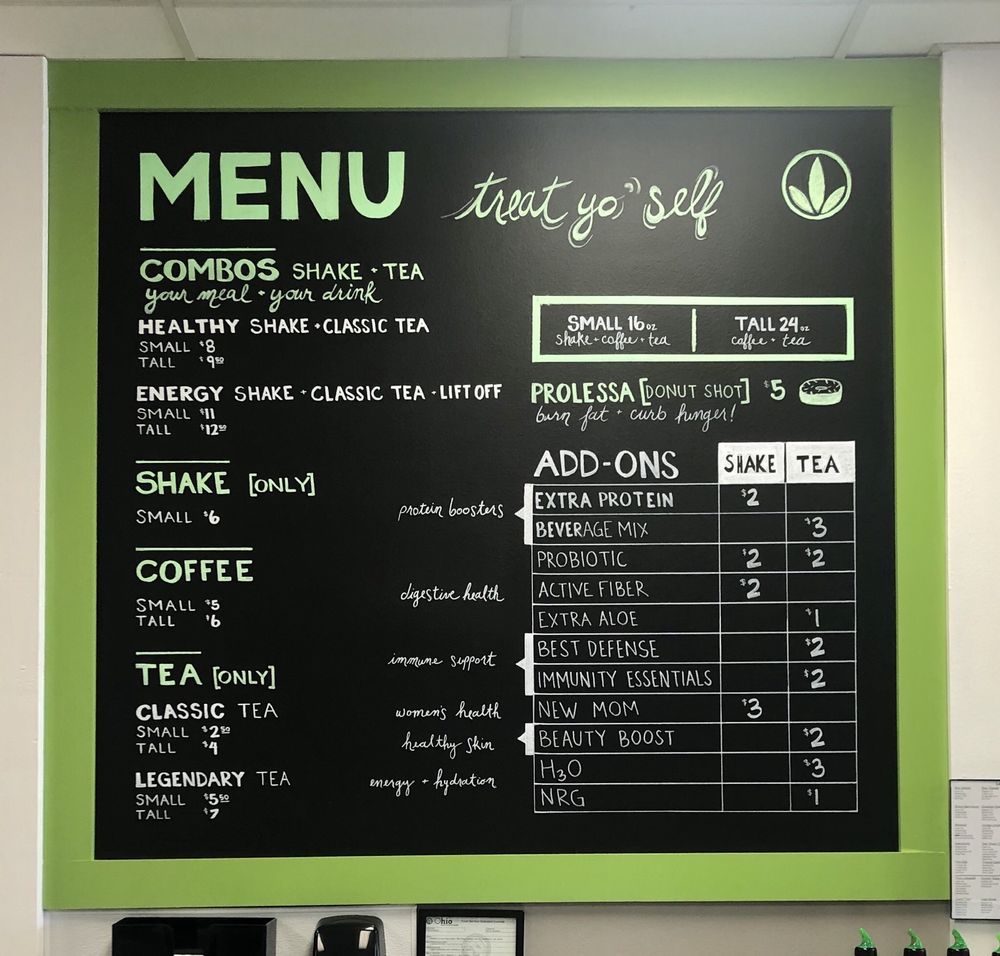 MENU
treat yo' self
COMBOS SHAKE + TEA
your meal + your drink
HEALTHY SHAKE + CLASSIC TEA
SMALL $8
TALL $9.50
ENERGY SHAKE + CLASSIC TEA + LIFT OFF
SMALL $11
TALL $12.50
SHAKE [ONLY]
SMALL $6
COFFEE
SMALL $5
TALL $6
TEA [ONLY]
CLASSIC TEA
SMALL $2.50
TALL $4
LEGENDARY TEA
SMALL $5.50
TALL $7
SMALL 16 oz
shake + coffee + tea
TALL 24 oz
coffee + tea
PROLESSA [DONUT SHOT] $5
burn fat + curb hunger!
ADD-ONS SHAKE TEA
protein boosters
EXTRA PROTEIN $2
BEVERAGE MIX $3
PROBIOTIC $2 $2
digestive health
ACTIVE FIBER $2
EXTRA ALOE $1
immune support
BEST DEFENSE $2
IMMUNITY ESSENTIALS $2
women's health
NEW MOM $3
healthy skin
BEAUTY BOOST $2
energy + hydration
H3O $3
NRG $1
Ohio